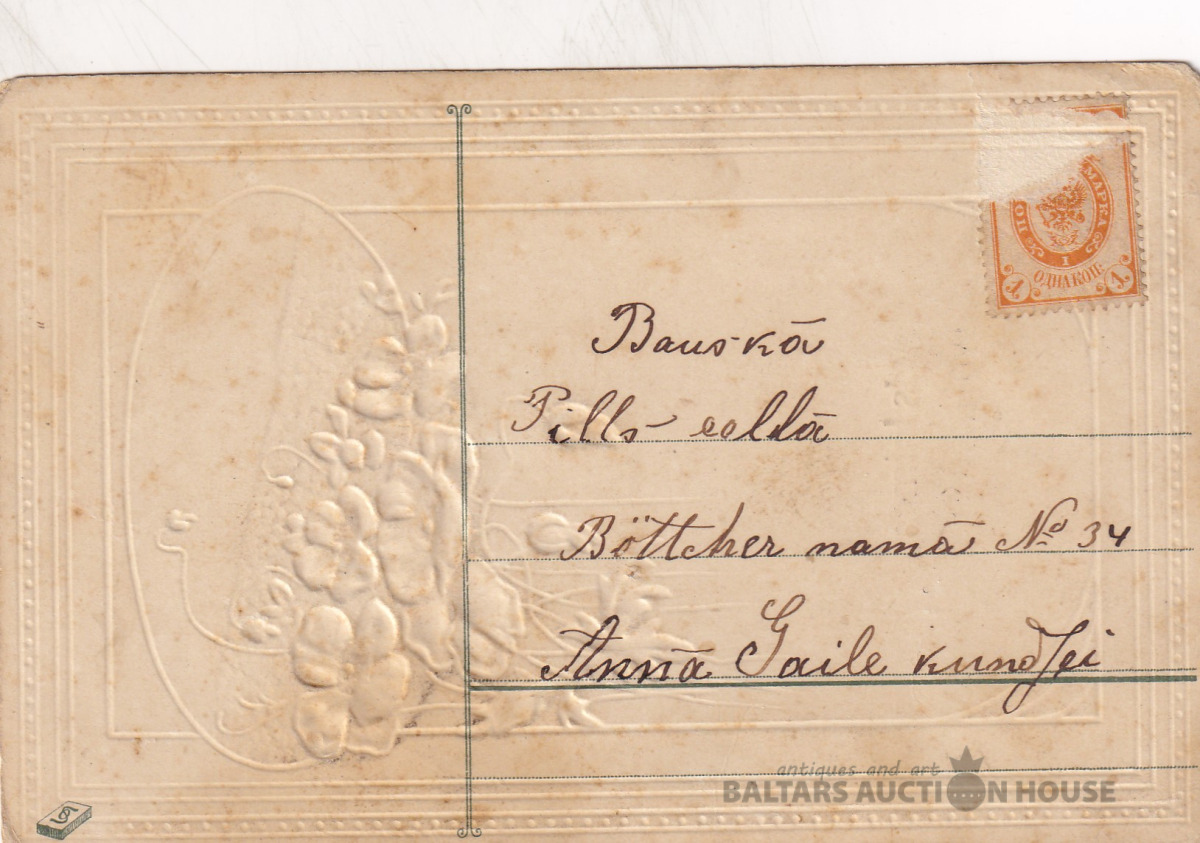 МАРКА
1
ОДНА КОП:
1 1
Bauskā
Pills eelā
Böttcher namā № 34
Anna Gaile kundzei
antiques and art
BALTARS AUCTION HOUSE